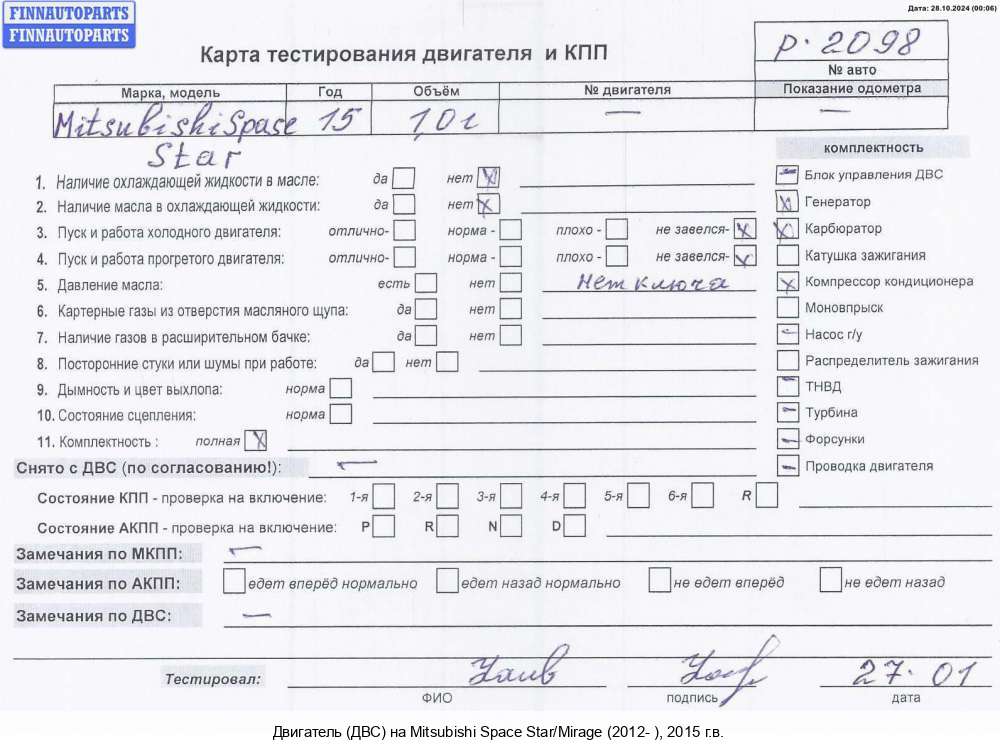 FINNAUTOPARTS
FINNAUTOPARTS
Дата: 28.10.2024 (00:06)
Карта тестирования двигателя и КПП
р. 2098
№ авто
Марка, модель Год Объём № двигателя Показание одометра
Mitsubishi Spase 15 1,0i — —
Star
комплектность
1. Наличие охлаждающей жидкости в масле: да нет
Блок управления ДВС
2. Наличие масла в охлаждающей жидкости: да нет
Генератор
3. Пуск и работа холодного двигателя: отлично- норма - плохо - не завелся-
Карбюратор
4. Пуск и работа прогретого двигателя: отлично- норма - плохо - не завелся-
Катушка зажигания
5. Давление масла: есть нет Нет ключа
Компрессор кондиционера
6. Картерные газы из отверстия масляного щупа: да нет
Моновпрыск
7. Наличие газов в расширительном бачке: да нет
Насос г/у
8. Посторонние стуки или шумы при работе: да нет
Распределитель зажигания
9. Дымность и цвет выхлопа: норма
ТНВД
10. Состояние сцепления: норма
Турбина
11. Комплектность : полная
Форсунки
Снято с ДВС (по согласованию!): —
Проводка двигателя
Состояние КПП - проверка на включение: 1-я 2-я 3-я 4-я 5-я 6-я R
Состояние АКПП - проверка на включение: P R N D
Замечания по МКПП: —
Замечания по АКПП: едет вперёд нормально едет назад нормально не едет вперёд не едет назад
Замечания по ДВС: —
Тестировал: 27. 01
ФИО подпись дата
Двигатель (ДВС) на Mitsubishi Space Star/Mirage (2012- ), 2015 г.в.